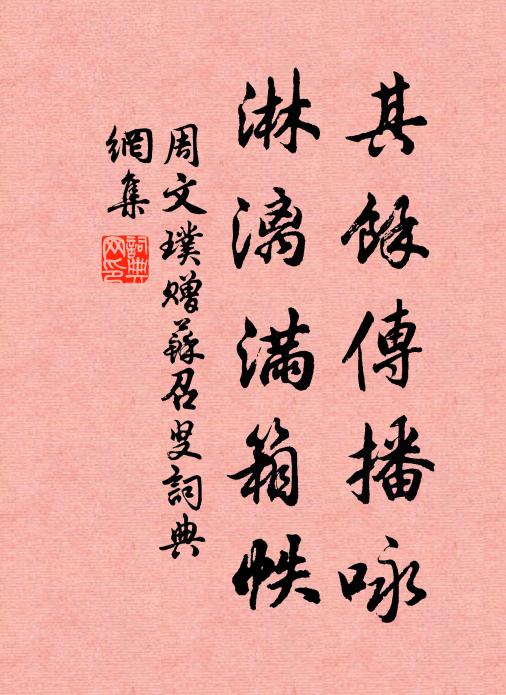 其餘傳播咏
淋漓滿箱帙
周文璞贈蘇召叟詞典
網集
詞典網印